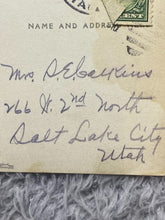 CENT
NAME AND ADDRESS
Mrs. D. E. Calkins
266 W. 2nd North
Salt Lake City
Utah